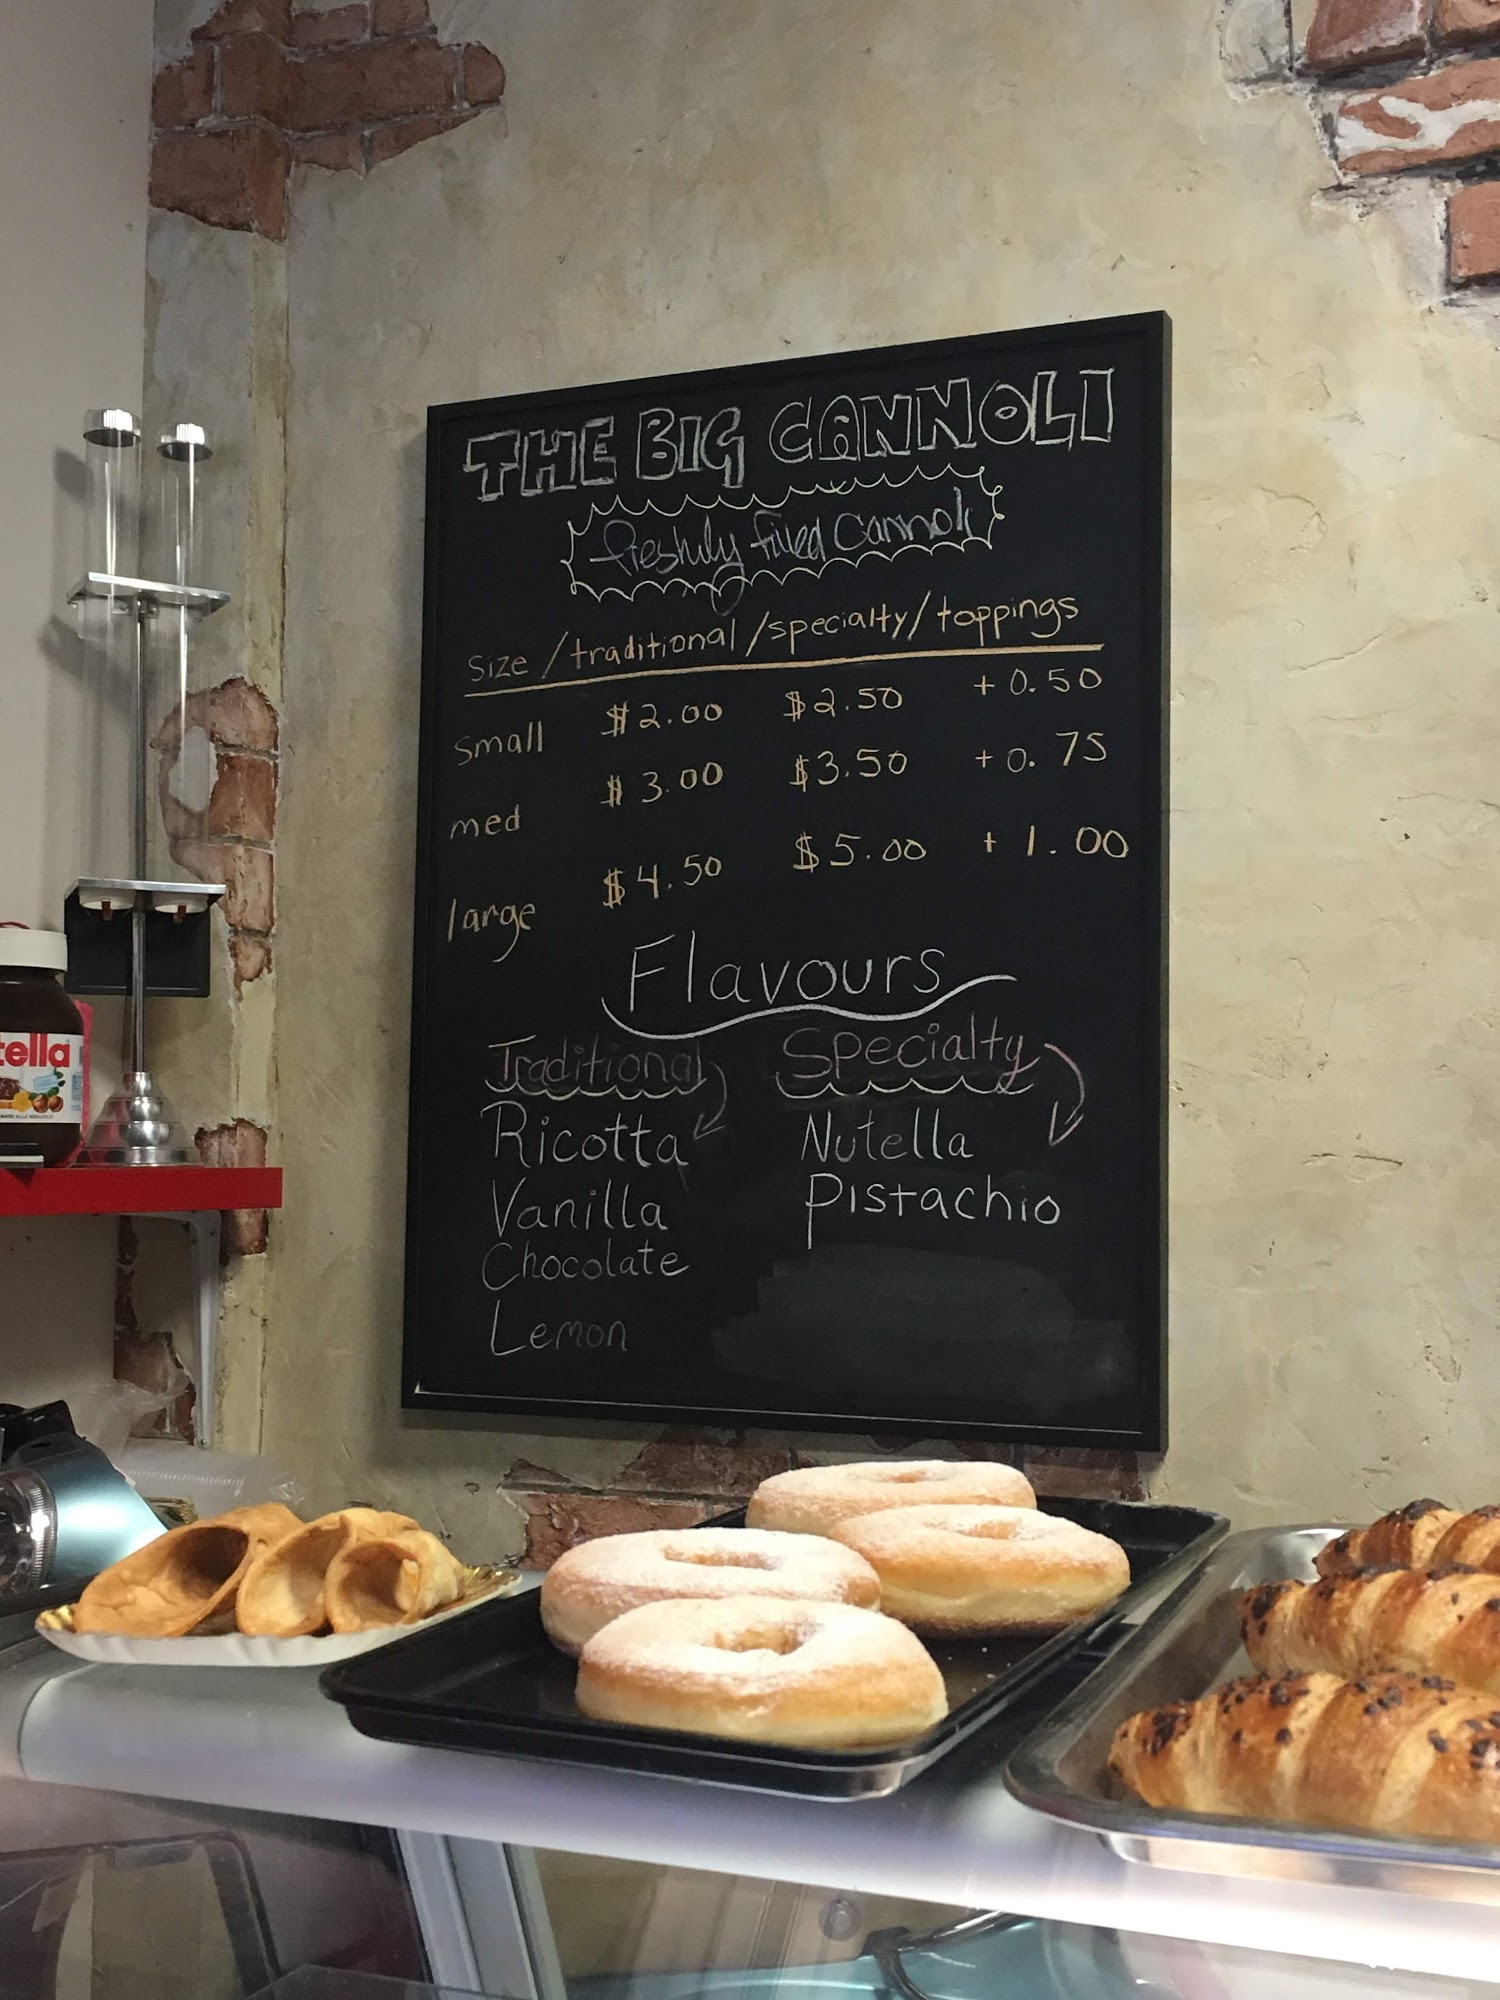 THE BIG CANNOLI
freshly filled Cannoli
size / traditional / specialty / toppings
small $2.00 $2.50 + 0.50
med $3.00 $3.50 + 0.75
large $4.50 $5.00 + 1.00
Flavours
Traditional Specialty
Ricotta Nutella
Vanilla Pistachio
Chocolate
Lemon
tella